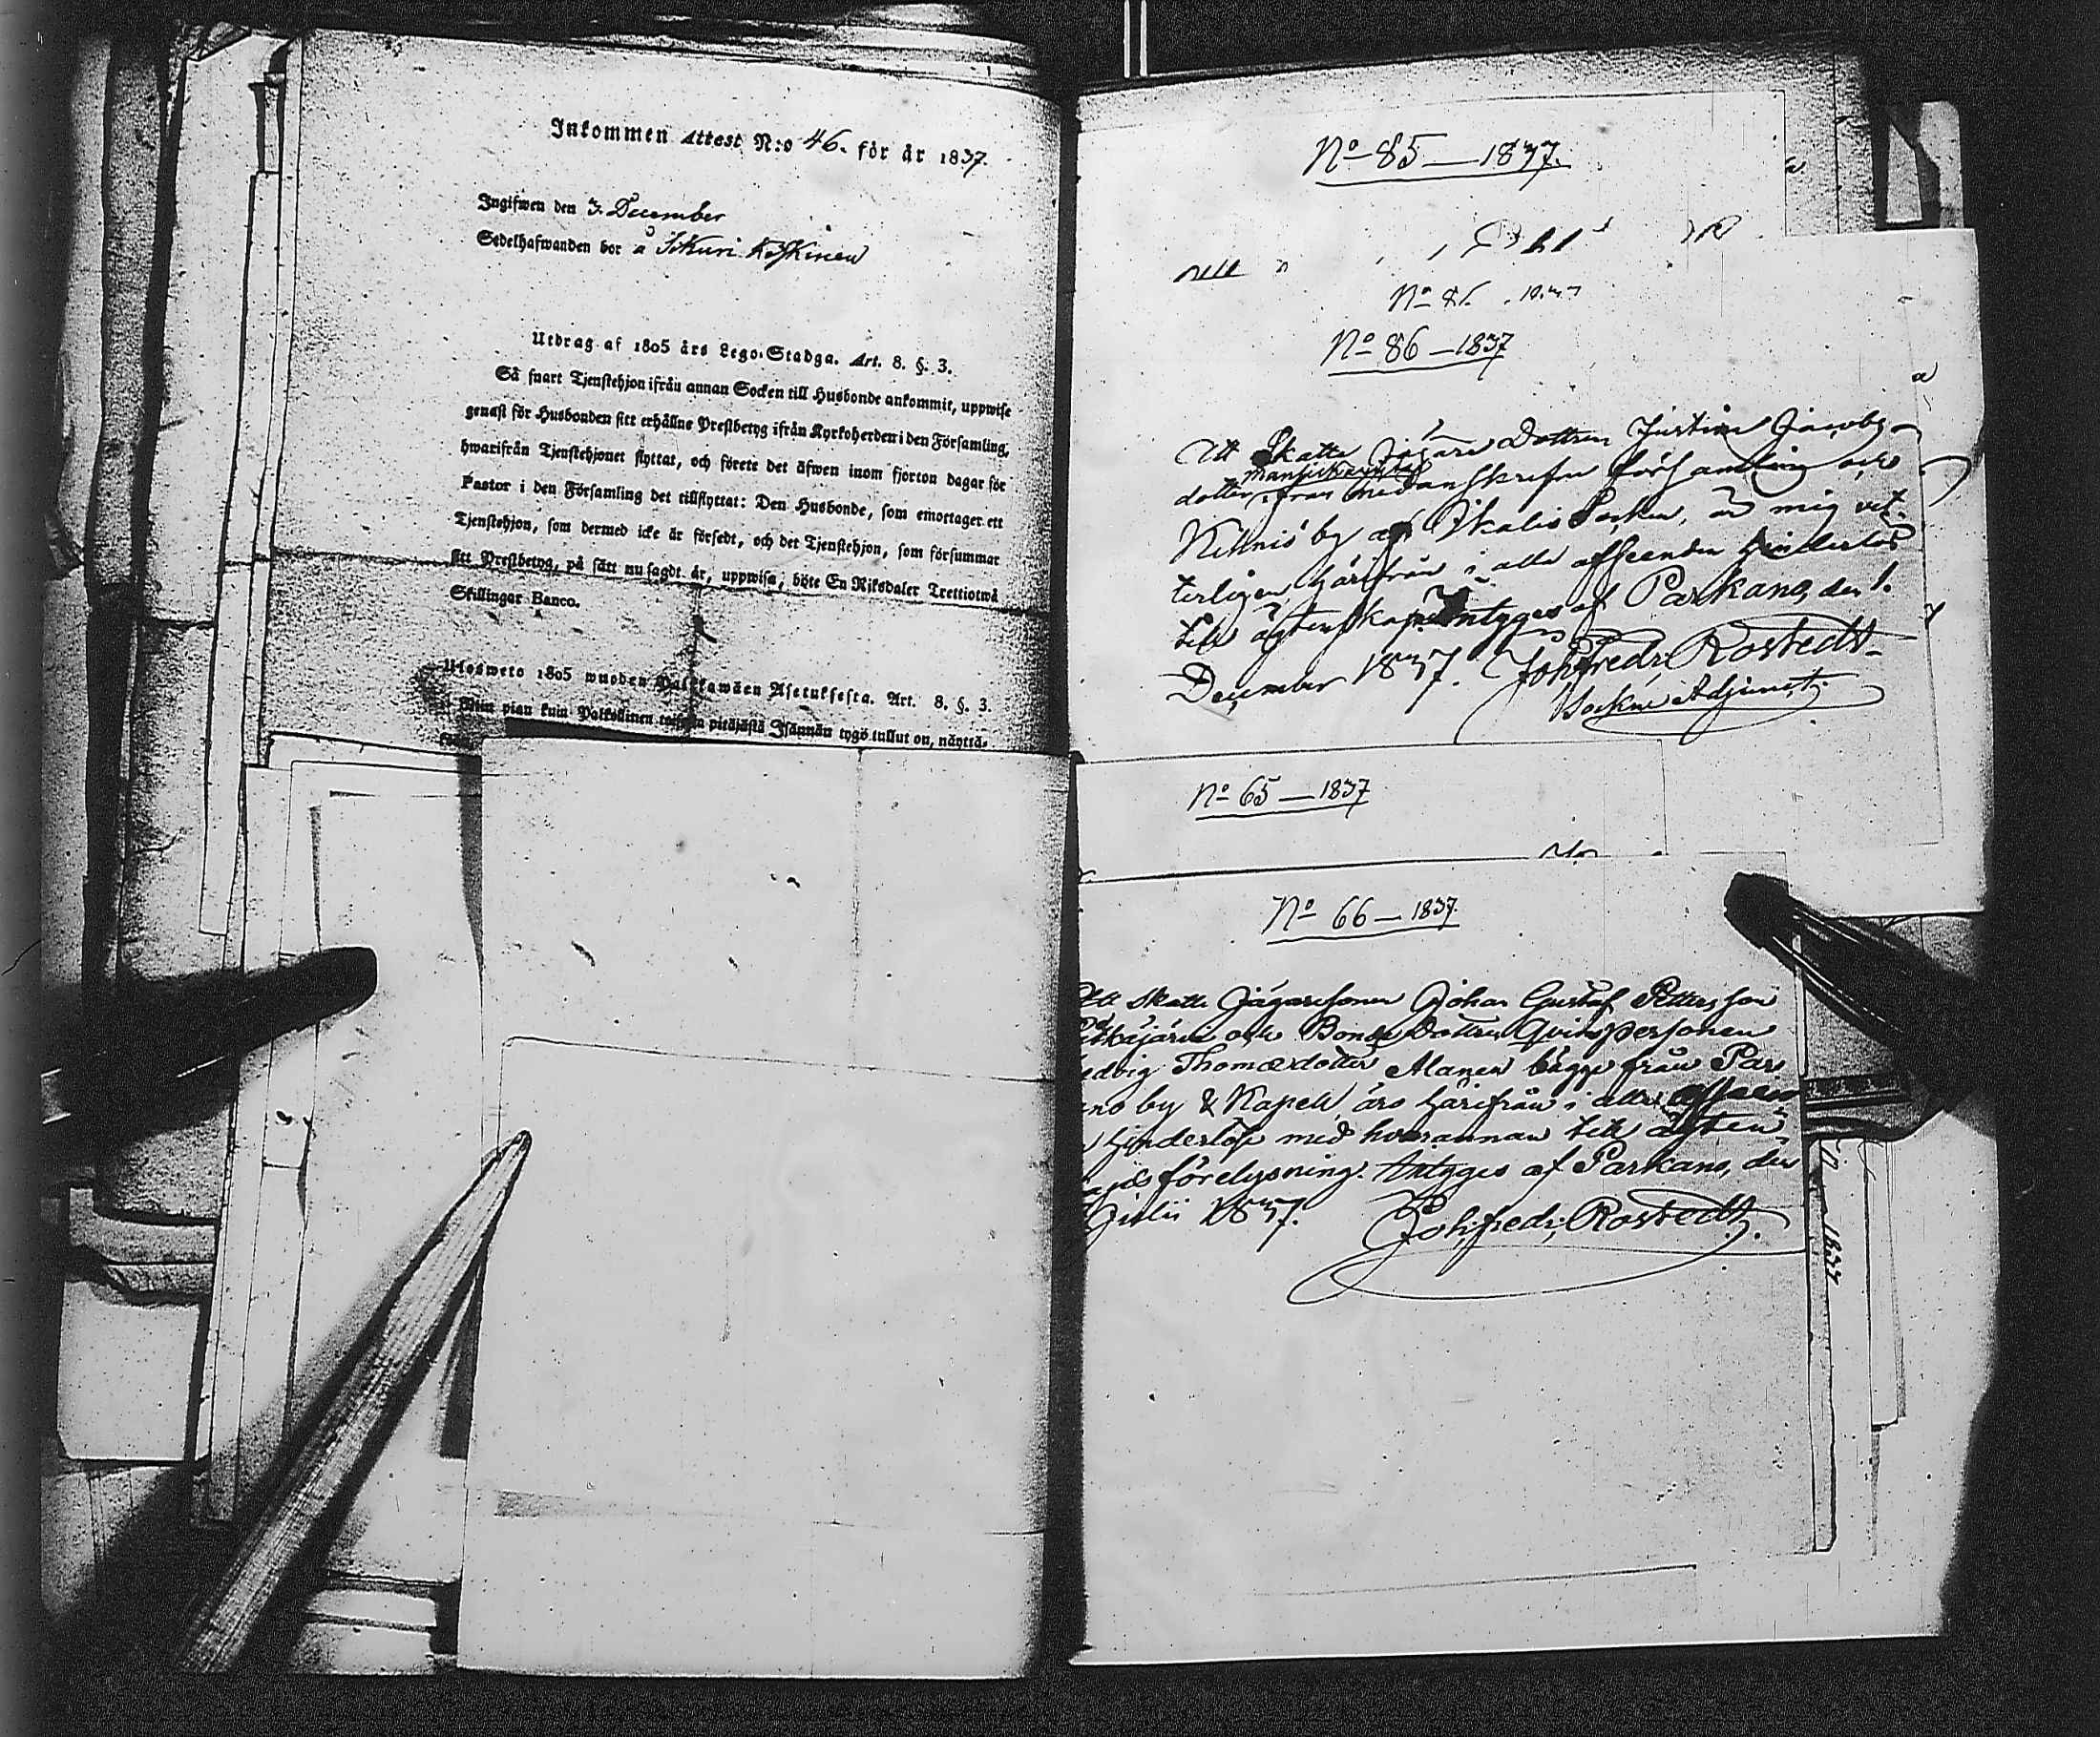 Inkommen Attest N:o 46. för år 1837.
Ingifwen den 3. December
Sedelhafwanden bor å
Utdrag af 1805 års Lego-Stadga. Art. 8. §. 3.
Så snart Tjenstehjon ifrån annan Socken till Husbonde ankommit, uppwise
genast för Husbonden sitt erhållne Prestbetyg ifrån Kyrkoherden i den Församling,
hwarifrån Tjenstehjonet flyttat, och förete det äfwen inom fjorton dagar för
Pastor i den Församling det tillflyttat: Den Husbonde, som emottager ett
Tjenstehjon, som dermed icke är försedt, och det Tjenstehjon, som försummar
sitt Prestbetyg, på sätt nu sagdt är, uppwisa, böte En Riksdaler Trettiotwå
Skillingar Banco.
Ulosweto 1805 wuoden Palkkawäen Asetuksesta. Art. 8. §. 3.
Niin pian kuin Palkollinen toisesta pitäjästä Isännän tygö tullut on, näyttä-
No 85 — 1837.
No 86 — 1837
Att Skatte Jägare Dottren Justina Jacobs-
dotter från nedanskrefne Församling och
by af Ikalis Socken, är mig vet-
terligen härifrån i alla afseenden hinderlös
till ägtenskap intyges af Parkano, den 1.
December 1837. Joh: Fredr: Rostedt
Sockne Adjunct.
No 65 — 1837
No 66 — 1837.
Att Skatte Jägaresonen Johan Gustaf Pettersson
och Bonde Dottren Qvinspersonen
edvig Thomædotter Alanen bägge från Par
ano by & Kapell, äro härifrån i alla afseen
hinderlöse med hvarannan till ägten
förelysning. Intyges af Parkano, den
Julii 1837. Joh: Fredr: Rostedt.